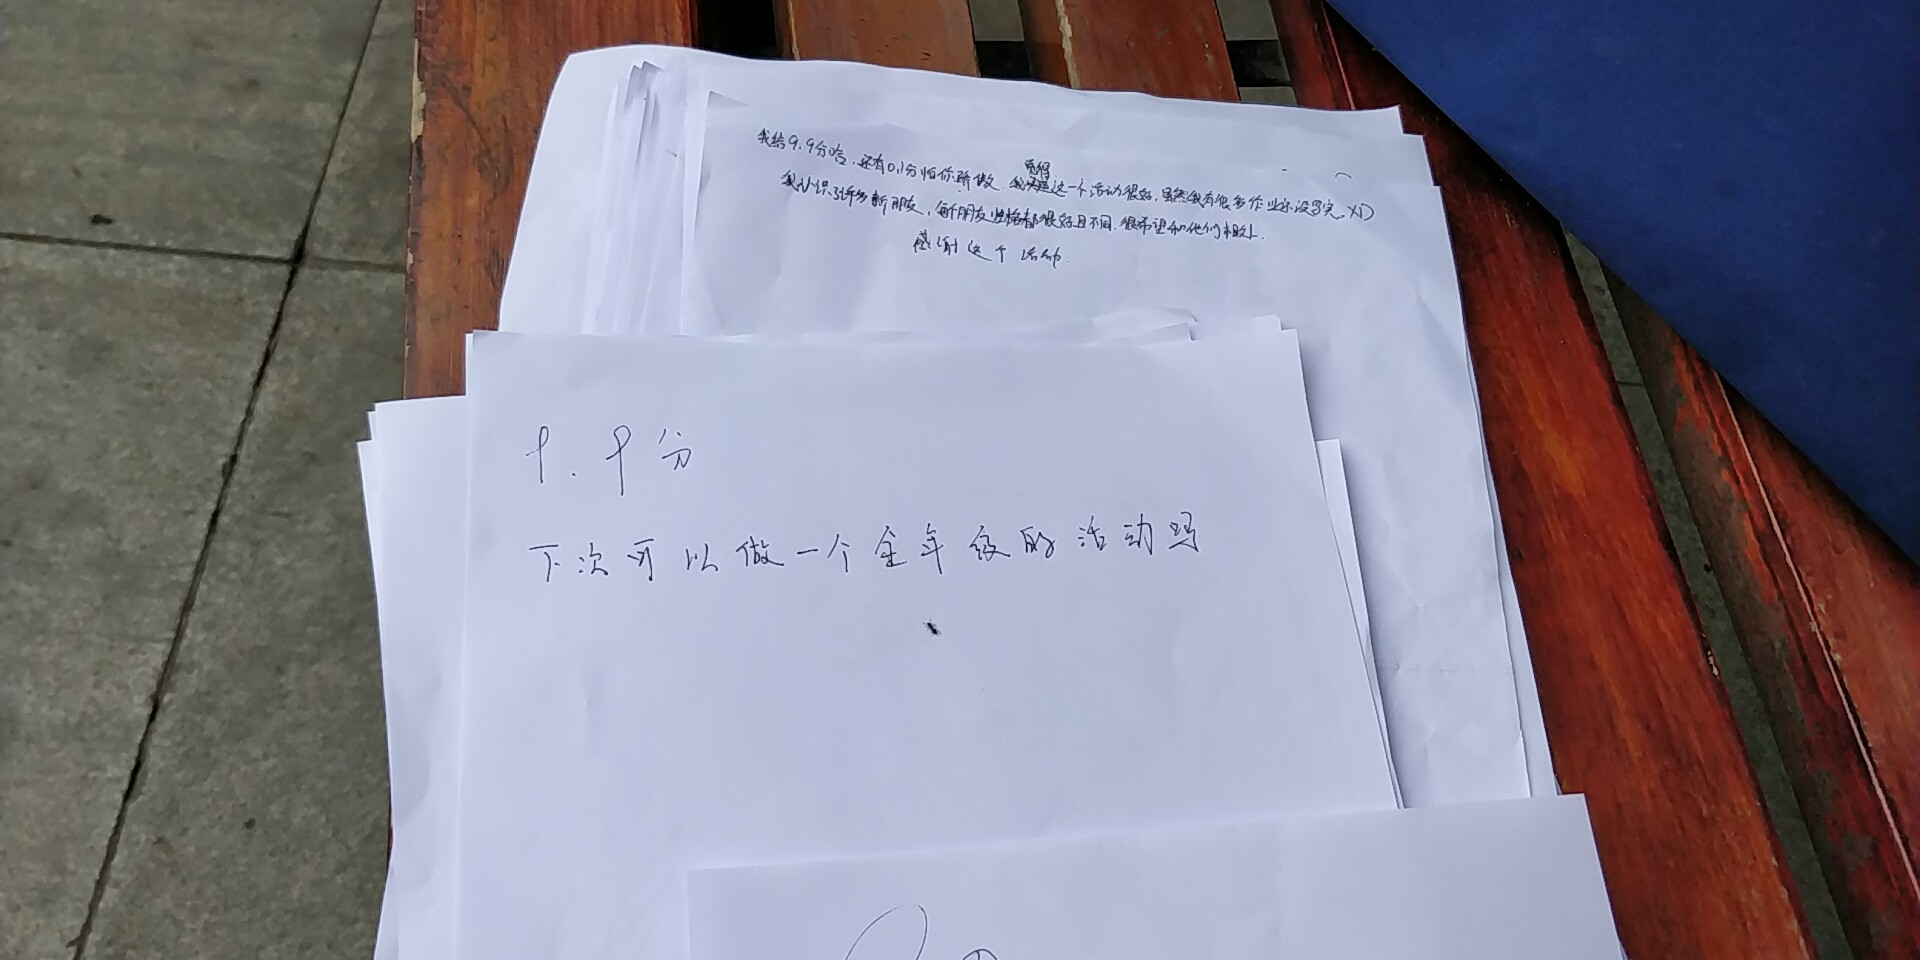 我给9.9分哈，还有0.1分怕你骄傲．我觉得这一个活动很好，虽然我有很多作业还没写完 XD
我认识了许多新朋友，每个朋友性格都很好且不同，很希望和他们相处．
感谢这个活动．
9.9分
下次可以做一个全年级的活动吗